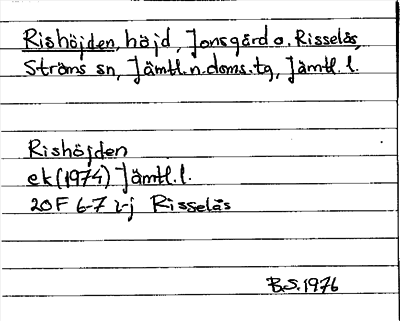 Rishöjden, höjd, Jonsgård o. Risselås,
Ströms sn, Jämtl.n.doms.tg, Jämtl.l.
Rishöjden
ek(1974) Jämtl.l.
20F 6-7 i-j Risselås
B.S.1976